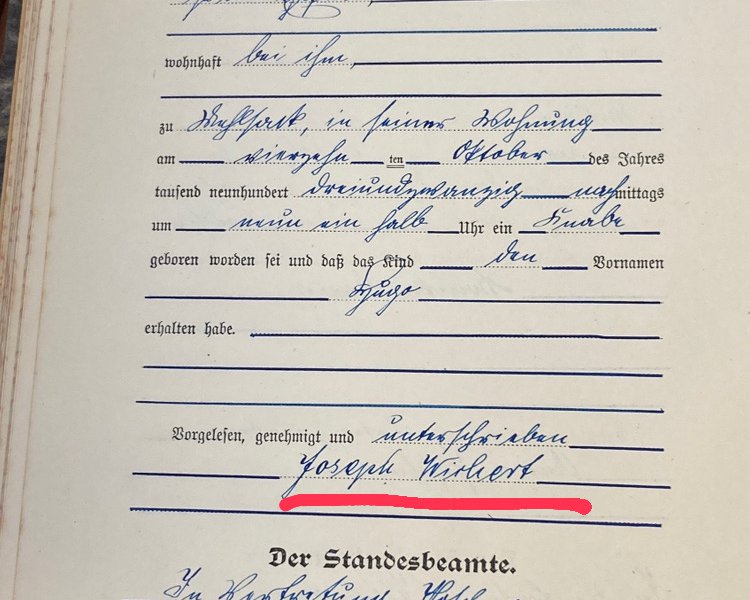 wohnhaft bei ihm,
zu Mehlsack, in seiner Wohnung
am vierzehn ten Oktober des Jahres
tausend neunhundert dreiundzwanzig nachmittags
um neun ein halb Uhr ein Knabe
geboren worden sei und daß das Kind den Vornamen
Hugo
erhalten habe.
Vorgelesen, genehmigt und unterschrieben
Joseph
Der Standesbeamte.
In Vertretung